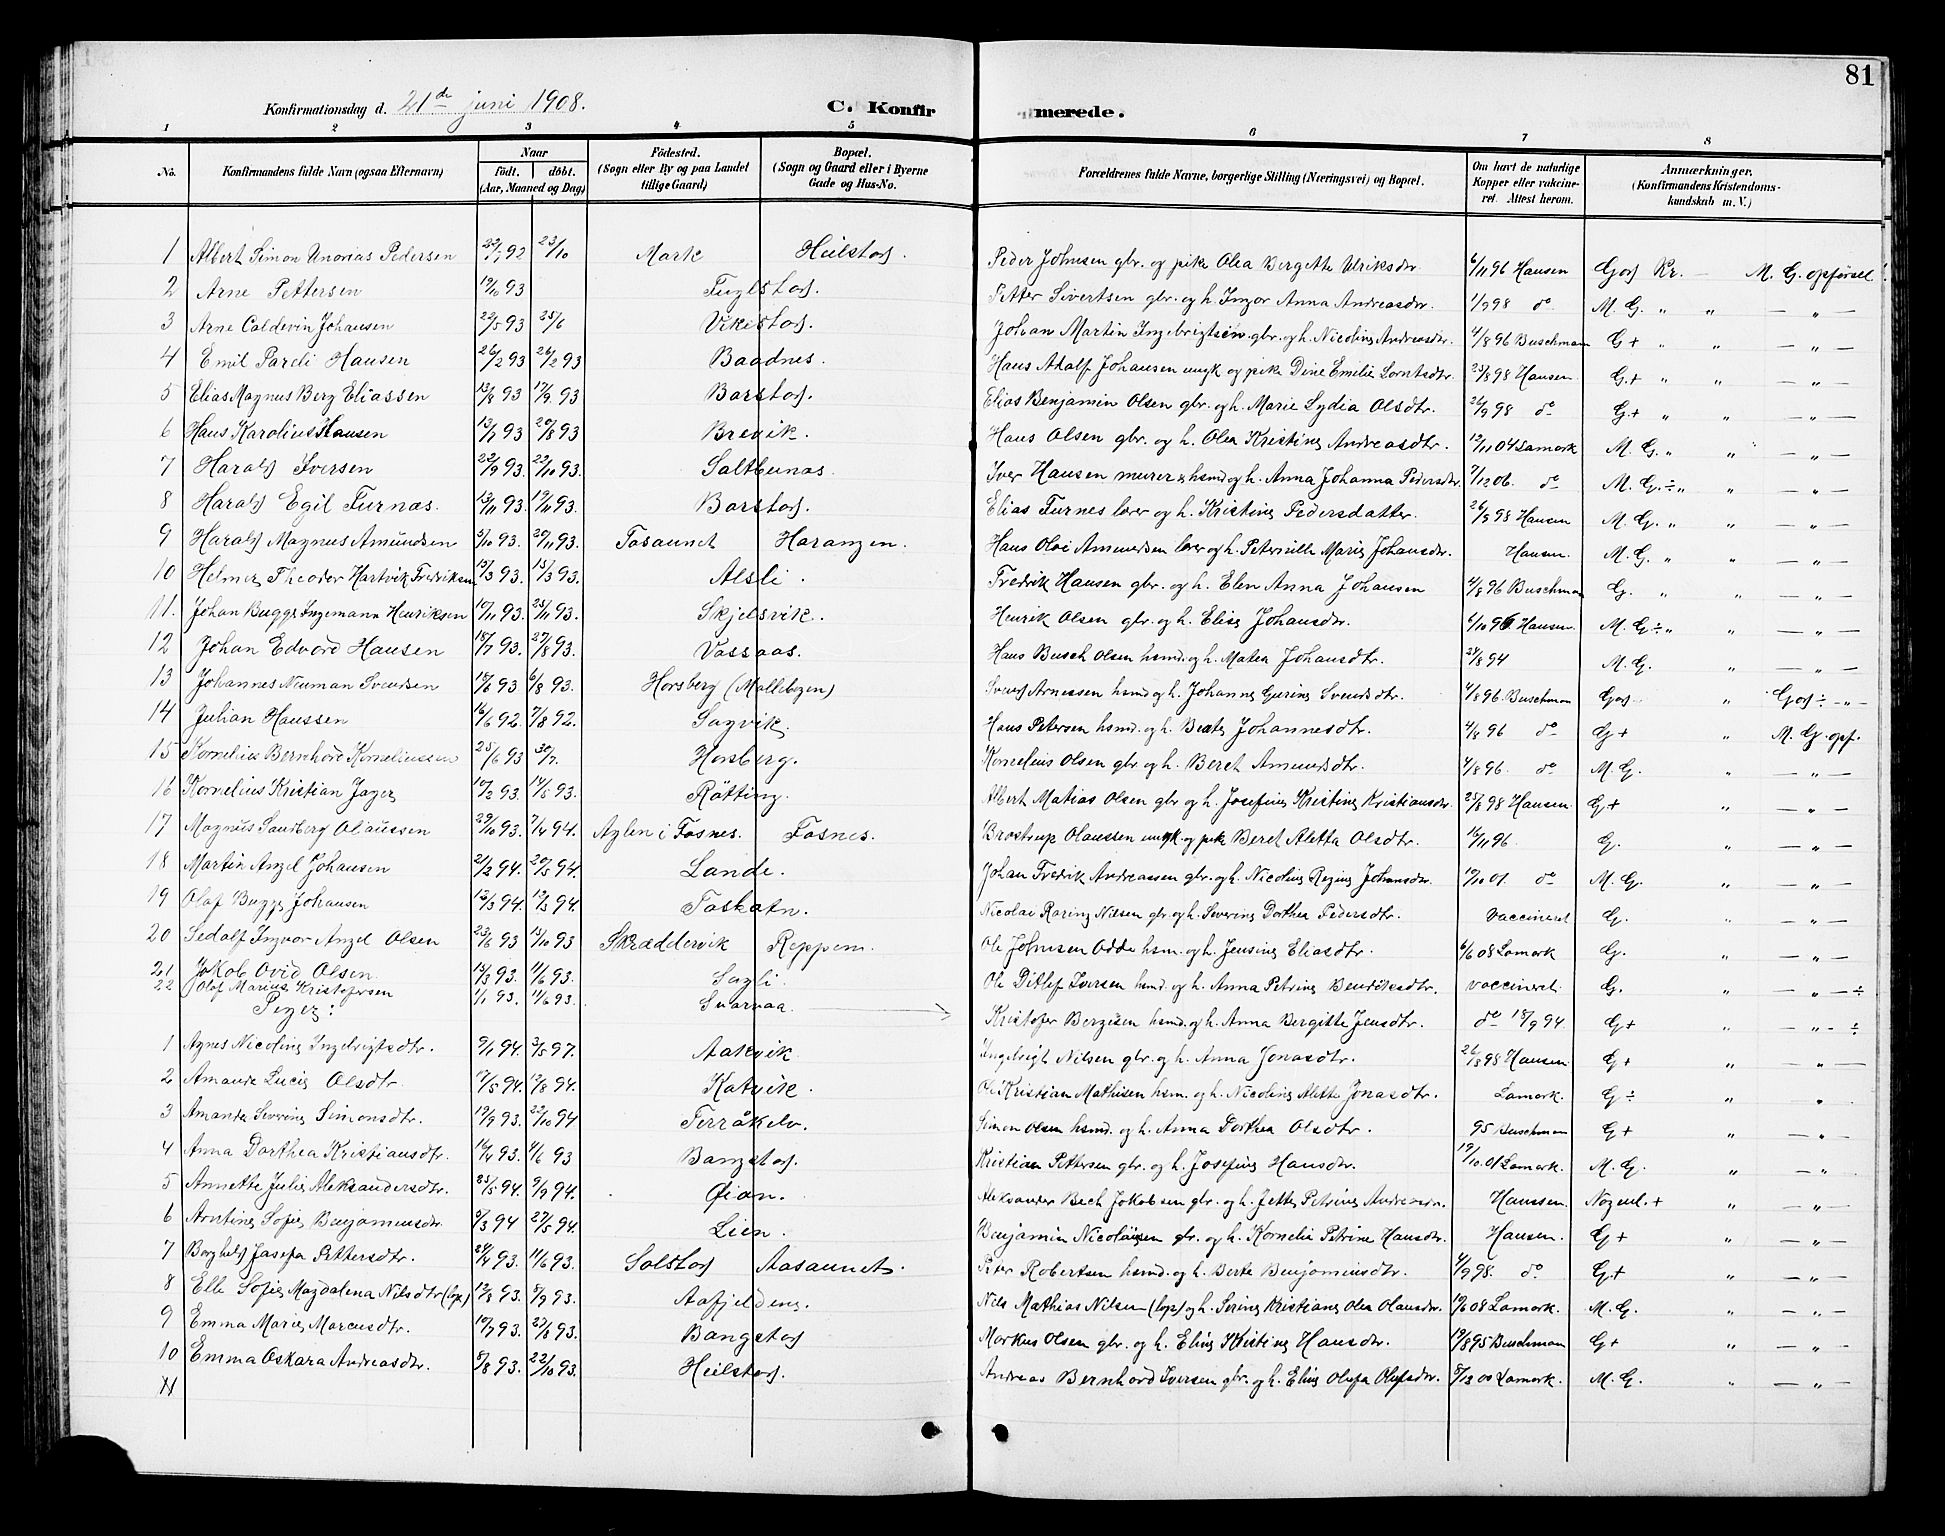 81
Konfirmationsdag d. 21de juni 1908. C. Konfirmerede.
1 2 3 4 5 6 7 8
No. Konfirmandens fulde Navn (ogsaa Efternavn) Naar født. døbt. (Aar, Maaned og Dag) Fødested. (Sogn eller By og paa Landet tillige Gaard) Bopæl. (Sogn og Gaard eller i Byerne Gade og Hus-No. Forældrenes fulde Navne, borgerlige Stilling (Næringsvei) og Bopæl. Om havt de naturlige Kopper eller vakcineret. Attest herom. Anmærkninger. (Konfirmandens Kristendomskundskab m. V.)
1 Albert Simon Unorias Pedersen 92 23/10 Mark Heilstad. Peder Johnsen gbr. og pike Olea Bergette Ulriksdtr. 6/11 96 Hansen God Kr. — M. G. opførsel
2 Arne Pettersen 19/10 93 Fuglstad. Petter Sivertsen gbr. og h. Ingor Anna Andreasdtr. 1/9 98 do M. G. " " — " —
3 Arne Caldevin Johansen 22/5 93 25/6 Vikestad. Johan Martin Ingebrigtsen gbr. og h. Nicoline Andreasdtr. 4/8 96 Buschman G+ " " — " —
4 Emil Pareli Hansen 26/2 93 26/2 93 Baadnes. Hans Adolf Johansen ungk og pike Dine Emilie Lorntsdtr. 25/8 98 Hansen G+ " " — " —
5 Elias Magnus Berg Eliassen 13/8 93 17/9. 93 Barstad. Elias Benjamin Olsen gbr. og h. Marie Lydia Olsdtr. 26/9 98 do G+ " " — " —
6 Hans Karolius Hansen 13/7 93 20/8 93 Brevik. Hans Olsen gbr. og h. Olea Kristine Andreasdtr. 12/11 04 Lamark M. G. " " — " —
7 Harald Iversen 22/9 93 23/10 93. Saltbunas. Iver Hansen murer & hsmd og h. Anna Johanna Pedersdtr. 7/12 06. do M. G. ÷ " " — " —
8 Harald Egil Furnas. 13/11 93. 19/11 93. Barstad. Elias Furnes lærer og h. Kristine Pedersdatter. 26/8 98 Hansen M. G. " " — " —
9 Harald Magnus Amundsen 5/10 93. 20/11 93. Fosaunet Harangen. Hans Oloi Amundsen lærer og h. Peternille Marie Johansdtr. Hansen. M. G. " " — " —
10 Helmer Theodor Hartvik Fredriksen 15/3 93. 15/3 93. Alsli. Fredrik Hansen gbr. og h. Elen Anna Johansen 4/8 96 Buschman G. " " — " —
11. Johan Bugge Ingemann Henriksen 10/11 93. 25/11 93. Skjelsvik. Henrik Olsen gbr. og h. Elise Johansdtr. 6/10 96. Hansen. M. G. ÷ " " — " —
12 Johan Edvard Hansen 18/7 93. 27/8 93. Vassaas. Hans Busch Olsen hsmd. og h. Matea Johansdtr. 24/8 94 M. G. " — " —
13 Johannes Neuman Svendsen 18/6 93 6/8 93. Horsberg (Mollebogen) Svend Arnessen hsmd og h. Johanne Gurine Svendsdtr. 4/8 96. Buschman God. " God ÷ — " —
14 Julian Hanssen 16/6 92. 7/8 92. Sagvik. Hans Petersen hsmd. og h. Beate Johannesdtr. 4/8 96 do G+ " M. G. opf.
15 Kornelius Bernhard Korneliussen 25/6 93 30/7. Horsberg. Kornelius Olsen gbr. og h. Beret Amundsdtr. 4/8 96. do M. G. " — " —
16 Kornelius Kristian Jager 10/2 93. 14/5 93. Røtting. Albert Matias Olsen gbr og h. Josefine Kristine Kristiansdtr. 25/8 98 Hansen. G+ " — " —
17 Magnus Sandberg Olaussen 29/10 93. 7/4 94. Aglen i Fosnes. Fosnes. Brostrup Olaussen ungk. og pike Beret Aletta Olsdtr. 16/11 96. G. " — " —
18 Martin Angel Johansen 21/2 94. 20/5 94. Lande. Johan Fredrik Andreassen gbr. og h. Nicoline Regine Johansdtr. 19/10 01. do M. G. " — " —
19 Olaf Bugge Johansen 12/3 94. 12/3 94. Faskatn. Nicolai Roring Nilsen gbr. og h. Severine Dorthea Pedersdtr. vaccineret G. " — " —
20 Sedolf Ingvar Angel Olsen 23/6 93 15/10 93 Skræddervik Reppem. Ole Johnsen Odde hsm. og h. Jensine Eliasdtr. 6/6 08 Lamark G. " — " —
21 Jakob Ovid Olsen 14/3 93. 11/6 93. Sagli. Ole Ditlef Iversen hsmd. og h. Anna Petrine Bendiksdtr. vaccineret. G. " — " — ÷
22 Olof Marius Kristofersen 1/1 93. 11/6 93. Svarvaa. Kristofer Bergesen hsmd. og h. Anna Bergitte Jensdtr. do 18/9 94. G+ " — " - ÷
Piger:
1 Agnes Nicoline Ingebrigtsdtr. 9/1 94. 3/5 97. Aakvik. Ingebrigt Nilsen gbr. og h. Anna Jonasdtr. 26/8 98 Hansen. G+ " — " —
2 Amanda Lucie Olsdtr. 17/5 94. 12/8 94. Katvik. Ole Kristian Mathisen hsm. og h. Nicoline Alette Jonasdtr. Lamark. G ÷ " "
3 Amanda Severine Simonsdtr. 19/9 93. 22/10 94 Ferråkelv. Simon Olsen hsmd. og h. Anna Dorthea Olsdtr. 95 Buschman G+ " — " —
4 Anna Dorthea Kristiansdtr. 14/4 93. 4/6 93 Bangstad. Kristian Pettersen gbr. og h. Josefine Hansdtr. 19/10. 01 Lamark. M. G. " — " —
5 Annette Julie Aleksandersdtr. 25/5 94. 9/9 94. Øian. Aleksander Bech Jakobsen gbr. og h. Jette Petrine Andreasdtr. Hanssen. Nogenl. + " — " —
6 Arntine Sofie Benjaminsdtr. 8/3 94 27/5 94. Lien. Benjamin Nicolaisen gbr. og h. Kornelia Petrine Hansdtr. Hansen. G+ " — " —
7 Borghild Josefa Pettersdtr. 24/4 93. 11/6 93. Solstad Aasaunet. Peter Robertsen hsmd. og h. Berte Benjaminsdtr. 4/9 98. do G+ " — " —
8 Elle Sofie Magdalena Nilsdtr (lap) 12/8 93. 5/9 93. Aafjeldene. Nils Mathias Nilsen (lap) og h. Serine Kristiane Olea Olausdtr. 19/6 08 Lamark. M. G. " — " —
9 Emma Marie Marcusdtr. 10/7 93. 27/8 93. Bangstad Markus Olsen gbr. og h. Eline Kristine Hansdtr. 19/8 95 Buschman G+ " — " —
10 Emma Oskara Andreasdtr. 8/8 93. 22/10 93. Heilstad. Andreas Bernhard Iversen gbr. og h. Eline Olufa Olufsdtr. 8/12 00 Lamark. M. G. " — " —
11